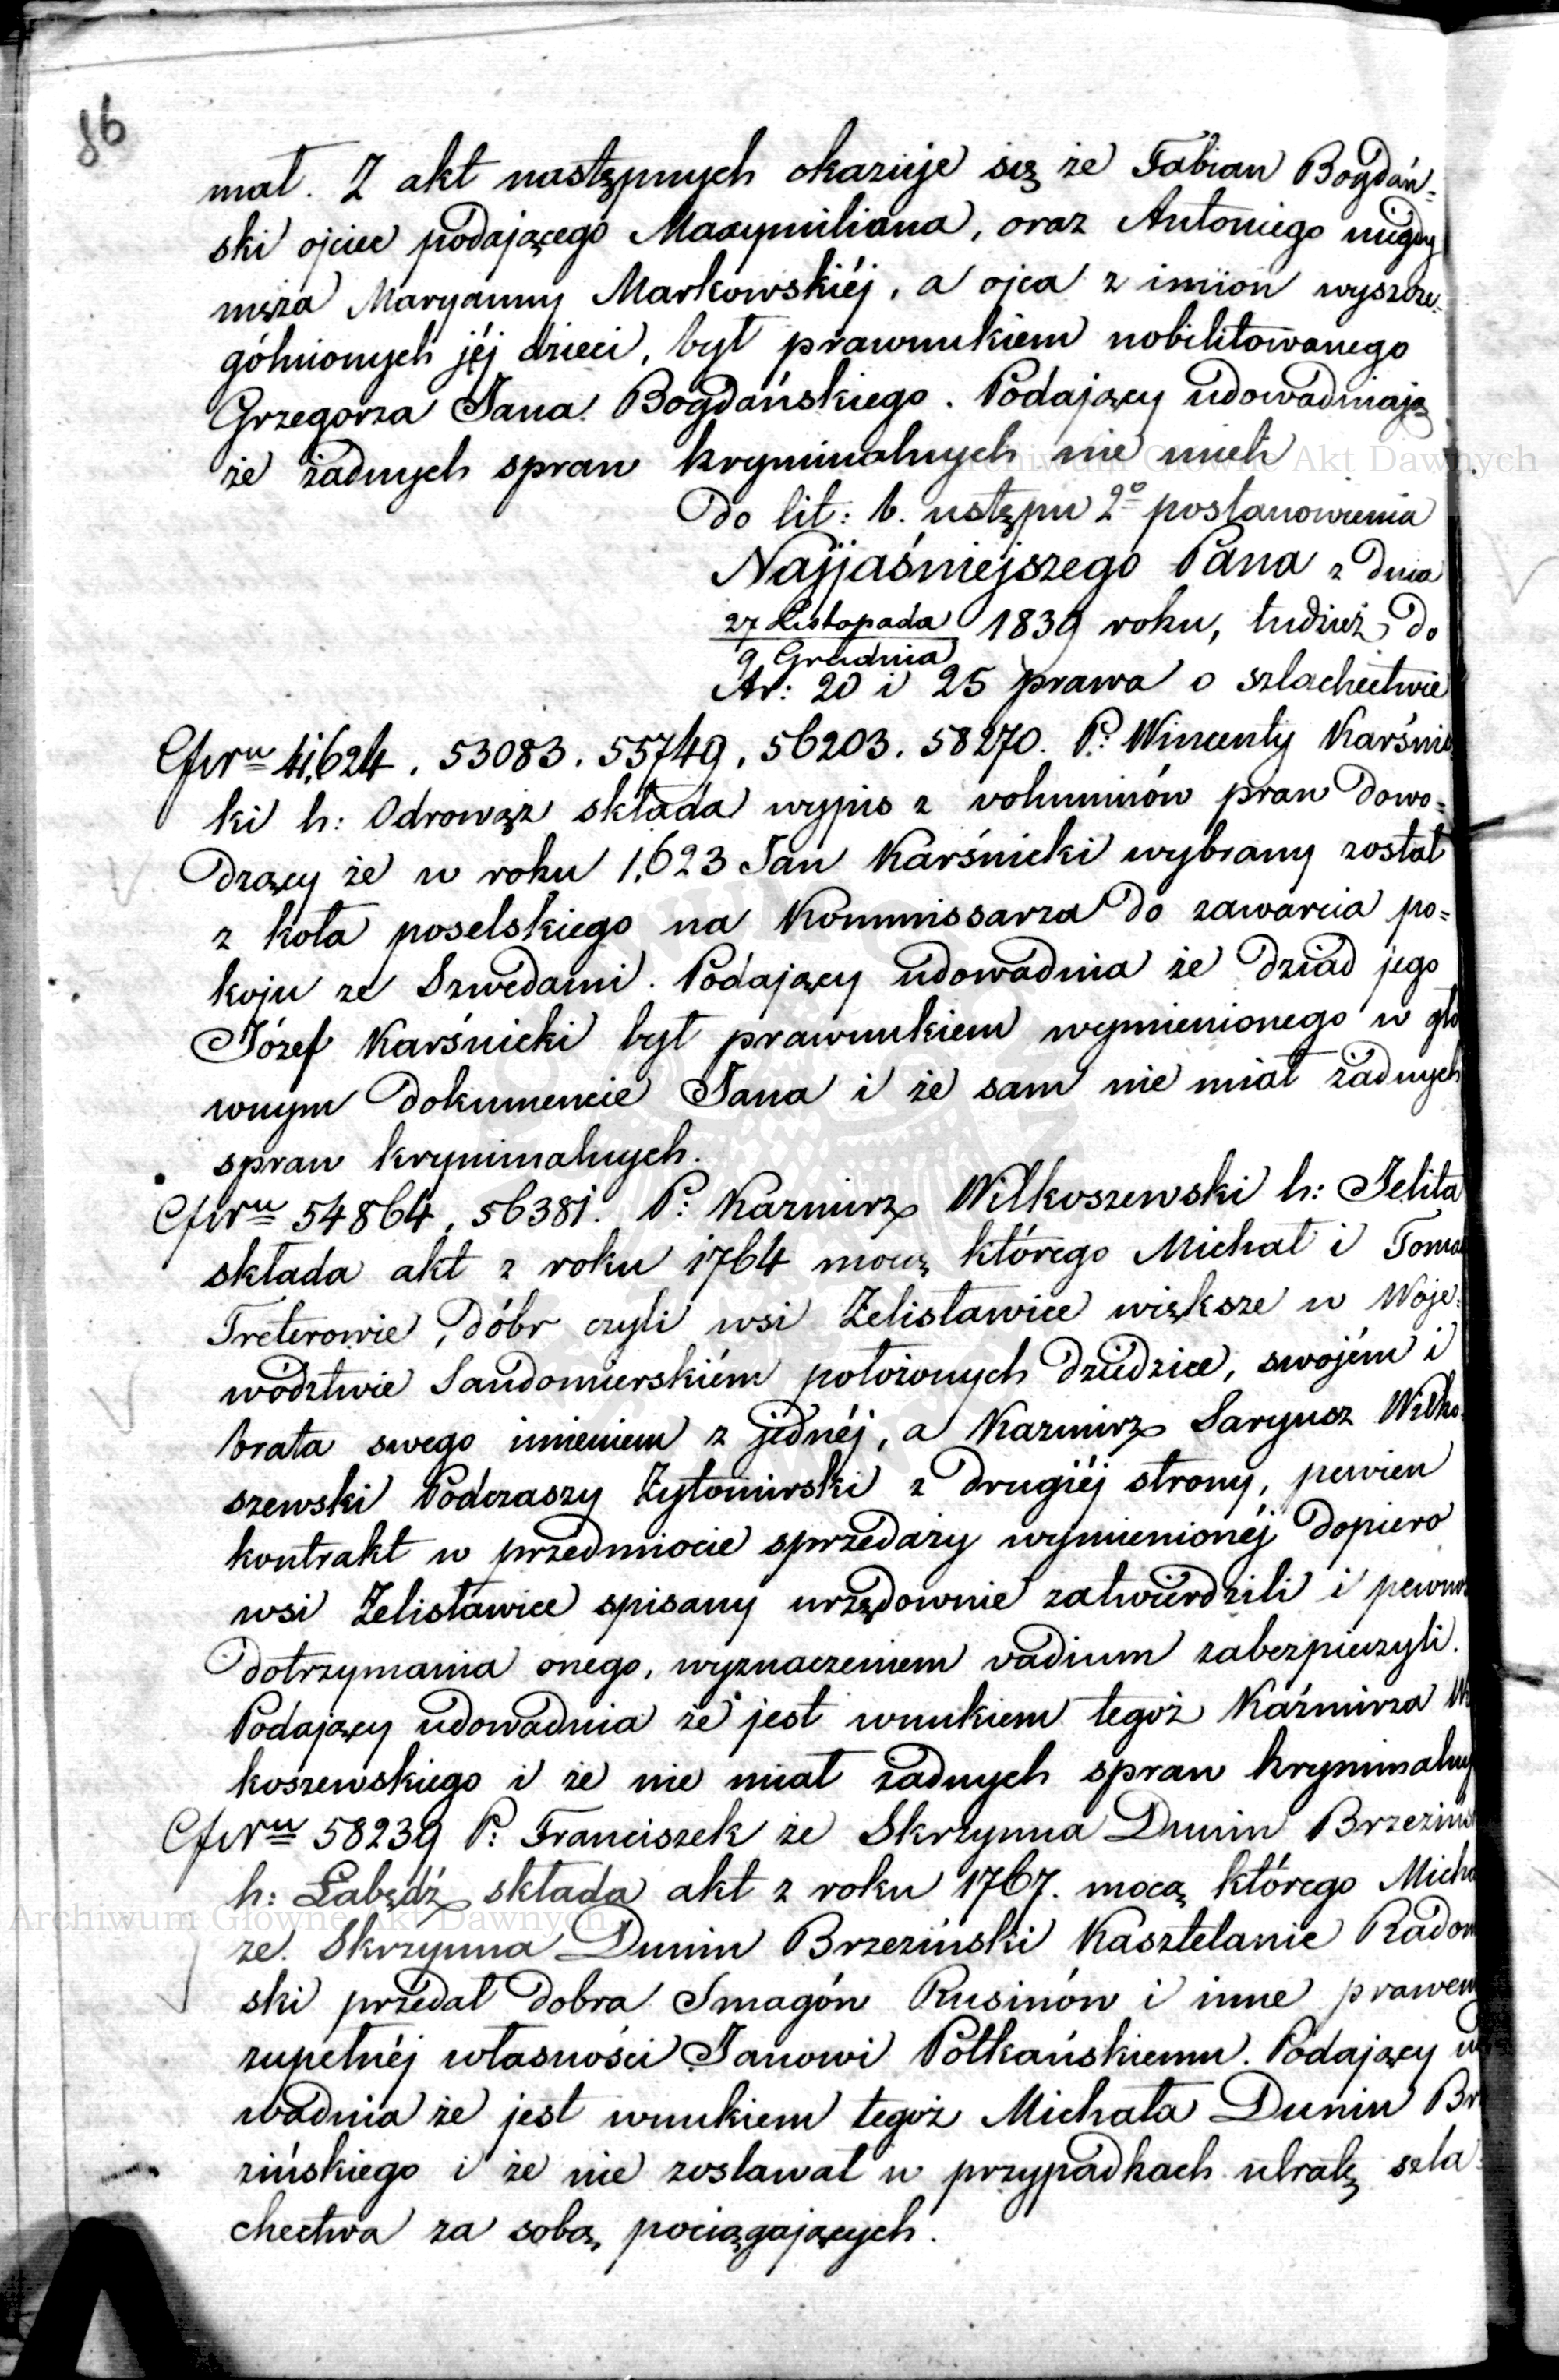 86
mał. Z akt następnych okazuje się że Fabian Bogdań=
ski ojciec podającego Maxymiliana, oraz Antoniego niegdy
męża Maryanny Markowskiéj, a ojca z imion wyszcze=
gólnionych jéj dzieci, był prawnukiem nobilitowanego
Grzegorza Jana Bogdańskiego. Podający udowadniają
że żadnych spraw kryminalnych nie mieli
Do lit: b. ustępu 2º postanowienia
Najjaśniejszego Pana z dnia
27 Listopada / 9 Grudnia 1839 roku, tudzież do
Ar: 20 i 25 prawa o szlachectwie
41,624, 53083. 55749, 56203. 58270. P: Wincenty Karśnic
ki h: Odrowąż składa wypis z voluminów praw dowo=
dzący że w roku 1,623 Jan Karśnicki wybrany został
z koła poselskiego na Kommissarza do zawarcia po=
koju ze Szwedami. Podający udowadnia że dziad jego
Józef Karśnicki był prawnukiem wymienionego w głó
wnym dokumencie Jana i że sam nie miał żadnych
spraw kryminalnych.
54864, 56381. P: Kazmirz Wilkoszewski h: Jelita
składa akt z roku 1764 mocą którego Michał i Toma
Treterowie, dóbr czyli wsi Żelisławice większe w Woje=
wództwie Sandomierskiém położonych dziedzice, swojém i
brata swego imieniem z jednéj, a Kazmirz Saryusz Wilko=
szewski Podczaszy Żytomirski z drugiéj strony, pewien
kontrakt w przedmiocie sprzedaży wymienionéj dopiero
wsi Żelisławice spisany urzędownie zatwierdzili i pewno
dotrzymania onego, wyznaczeniem vadium zabezpieczyli.
Podający udowadnia że jest wnukiem tegoż Kaźmirza Wi
koszewskiego i że nie miał żadnych spraw kryminalny
58239 P: Franciszek ze Skrzynna Dunin Brzezińs
h: Łabędź składa akt z roku 1767. mocą którego Micha
ze Skrzynna Dunin Brzeziński Kasztelanic Radom
ski przedał dobra Smagów Rusinów i inne prawem
zupełnéj własności Janowi Potkańskiemu. Podający u
wadnia że jest wnukiem tegoż Michała Dunin Br
zińskiego i że nie zostawał w przypadkach utratę szla=
chectwa za sobą pociągających.
Archiwum Główne Akt Dawnych
Archiwum Główne Akt Dawnych